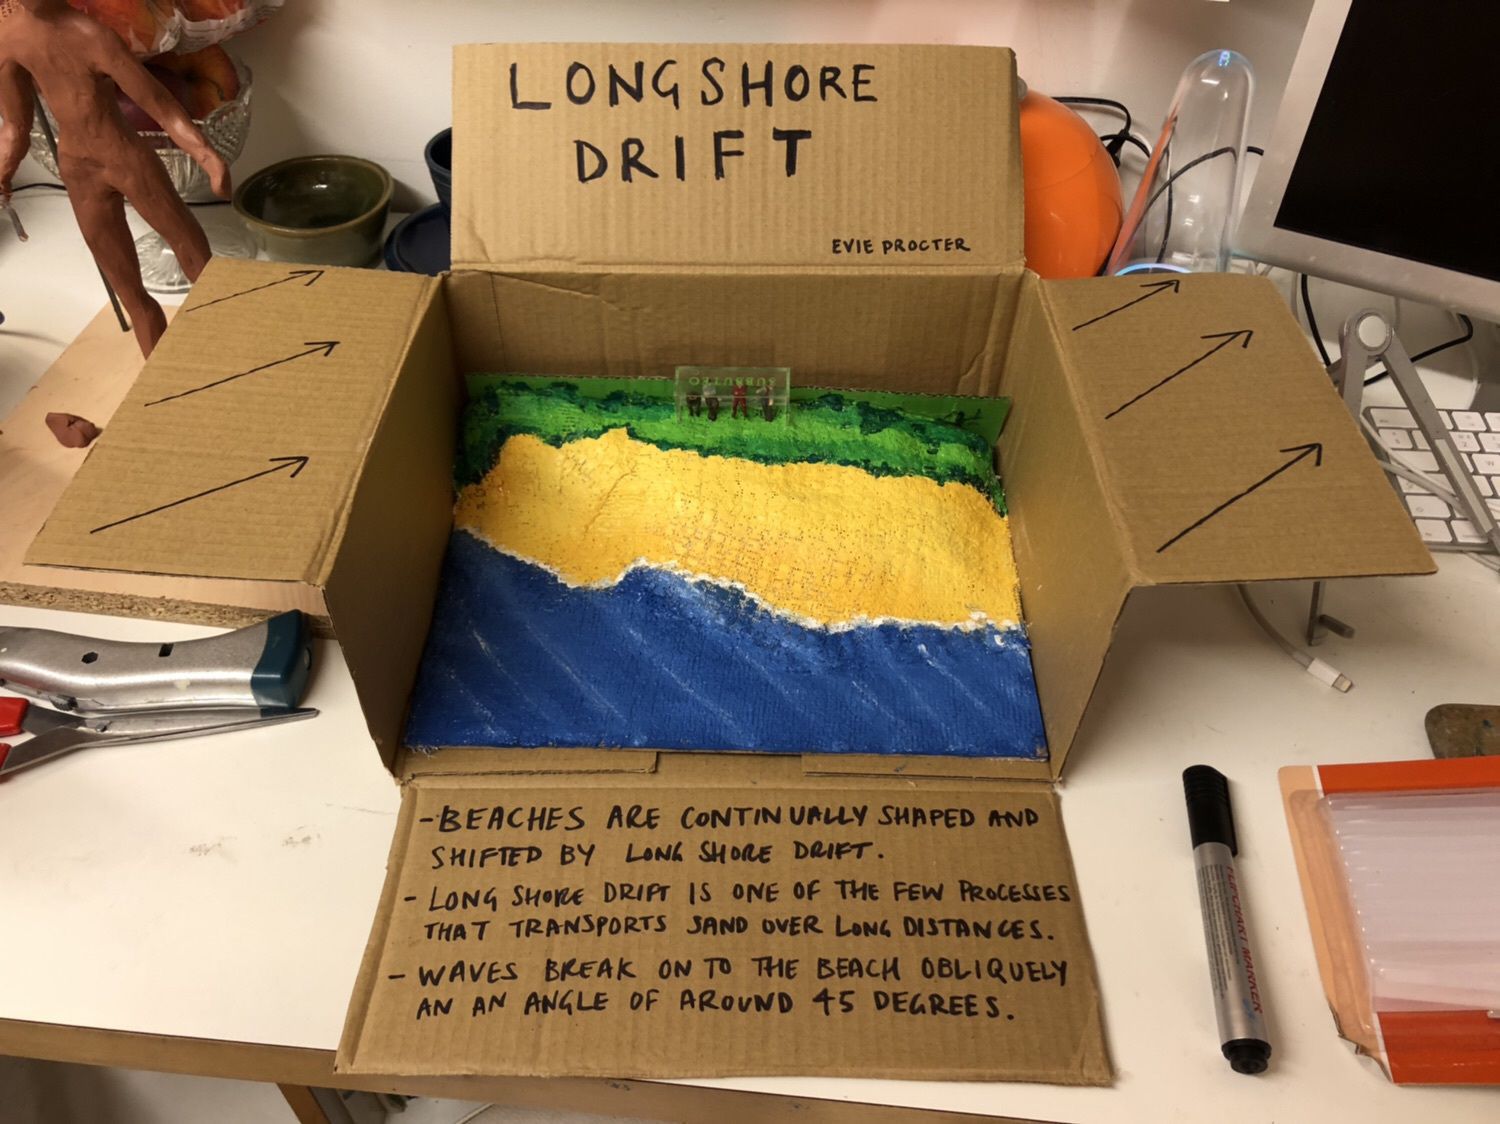 LONGSHORE
DRIFT
EVIE PROCTER
SUBBUTEO
- BEACHES ARE CONTINUALLY SHAPED AND
SHIFTED BY LONG SHORE DRIFT.
- LONG SHORE DRIFT IS ONE OF THE FEW PROCESSES
THAT TRANSPORTS SAND OVER LONG DISTANCES.
- WAVES BREAK ON TO THE BEACH OBLIQUELY
AN AN ANGLE OF AROUND 45 DEGREES.
FLIPCHART MARKER